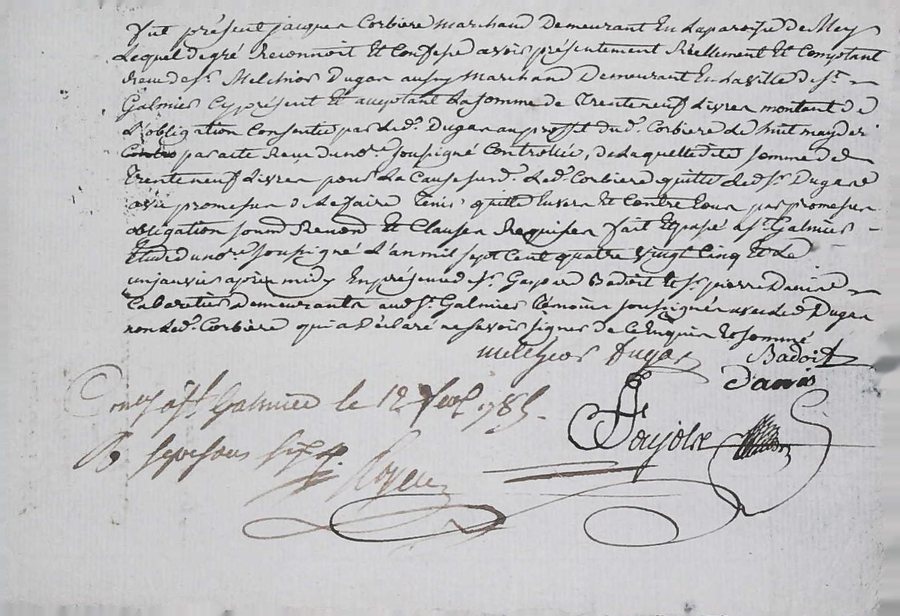 fut présent jacques Corbiere marchand Demeurant En Laparoisse de
Lequel degré Reconnoit Et Confesse avoir présentement Réellement Et Comptant
Receu de sr. Melchior Dugas aussy Marchand Demeurant En Laville de st.
Galmier Cy présent Et aceptant La somme de Trente neuf Livres montant de
L'obligation Consentie par Led. Dugas au proffit dud. Corbiere Le huit may
par acte Receu du nore. soussigné Controllée, de Laquelle dite somme de
Trente neuf Livres pour La Cause susd. Led. Corbiere quitte Led. sr. Dugas
avec promesse de Le faire Tenir quitte Envers Et Contre Tous par promesse
obligation soumd Renond Et Clauses Requises fait Et passé a st. Galmier
Etude du nore soussigné L'an mil sept Cent quatre vingt Cinq Et Le
janvier après midy En présence de sr. Gaspard Badoit Et sr. pierre
Cabaretier demeurants aud. st. Galmier Témoins soussignés avec Led. Dugas
non Led. Corbiere qui a Déclaré ne savoir signer de Ce Enquis Et sommé
melchior Dugas Badoit
Danis
a st. Galmier le 12 1785.
Rs sept sous six d.